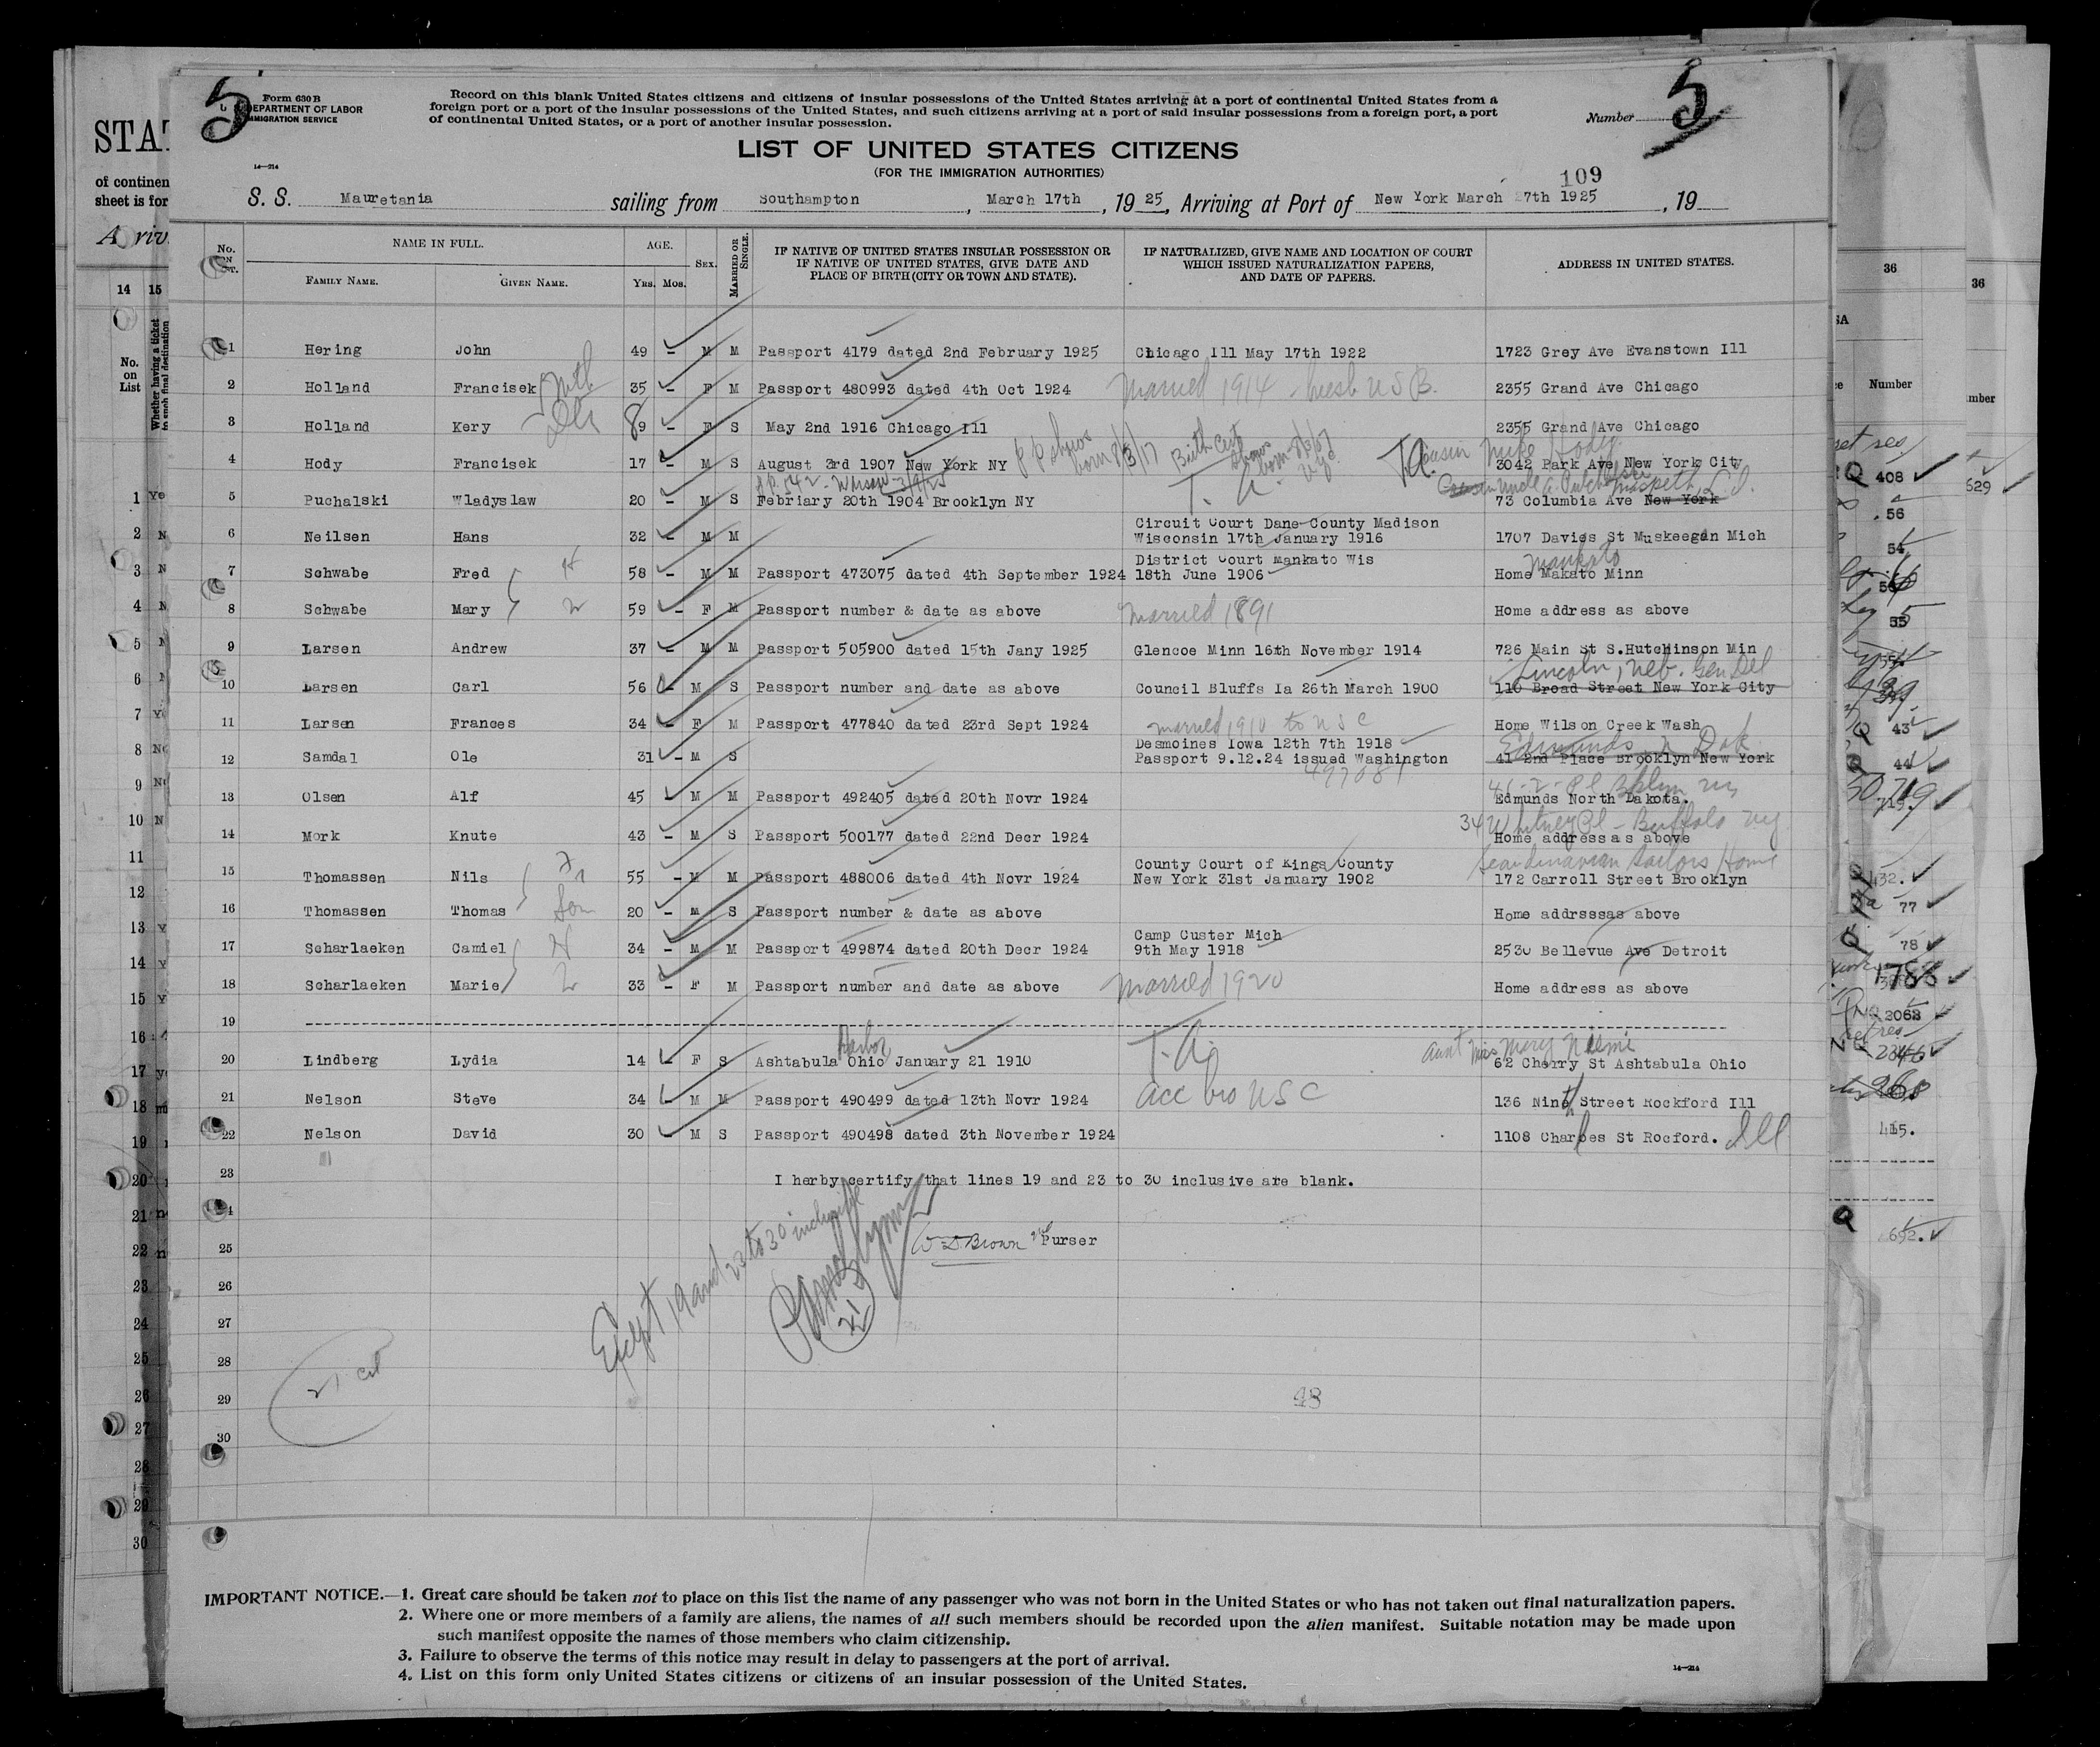 5
Form 630 B
DEPARTMENT OF LABOR
IMMIGRATION SERVICE
14—214
Record on this blank United States citizens and citizens of insular possessions of the United States arriving at a port of continental United States from a
foreign port or a port of the insular possessions of the United States, and such citizens arriving at a port of said insular possessions from a foreign port, a port
of continental United States, or a port of another insular possession.
Number 5
LIST OF UNITED STATES CITIZENS
(FOR THE IMMIGRATION AUTHORITIES)
109
S. S. Mauretania sailing from Southampton, March 17th, 1925, Arriving at Port of New York March 27th 1925, 19
No. ON LIST. NAME IN FULL. AGE. SEX. MARRIED OR SINGLE. IF NATIVE OF UNITED STATES INSULAR POSSESSION OR IF NATIVE OF UNITED STATES, GIVE DATE AND PLACE OF BIRTH (CITY OR TOWN AND STATE). IF NATURALIZED, GIVE NAME AND LOCATION OF COURT WHICH ISSUED NATURALIZATION PAPERS, AND DATE OF PAPERS. ADDRESS IN UNITED STATES.
FAMILY NAME. GIVEN NAME. YRS. MOS.
1 Hering John 49 - M M Passport 4179 dated 2nd February 1925 Chicago Ill May 17th 1922 1723 Grey Ave Evanstown Ill
2 Holland Francisek 35 - F M Passport 480993 dated 4th Oct 1924 Married 1914 2355 Grand Ave Chicago
3 Holland Kery 8 9 - F S May 2nd 1916 Chicago Ill 2355 Grand Ave Chicago
Cousin Mike Hody
4 Hody Francisek 17 - M S August 3rd 1907 New York NY PP shows born 8/3/17 Birth Cert shows born 8/3/07 3042 Park Ave New York City
Uncle Maspeth, L.I.
5 Puchalski Wladyslaw 20 - M S Febriary 20th 1904 Brooklyn NY T. A. 73 Columbia Ave New York
Circuit Court Dane County Madison
6 Neilsen Hans 32 - M M Wisconsin 17th January 1916 1707 Davies St Muskeegan Mich
District Court Mankato Wis Mankato
7 Schwabe Fred H 58 - M M Passport 473075 dated 4th September 1924 18th June 1906 Home Makato Minn
8 Schwabe Mary 59 - F M Passport number & date as above Married 1891 Home address as above
9 Larsen Andrew 37 - M M Passport 505900 dated 15th Jany 1925 Glencoe Minn 16th November 1914 726 Main St S.Hutchinson Min
Lincoln, Neb. Gen Del
10 Larsen Carl 56 - M S Passport number and date as above Council Bluffs Ia 26th March 1900 110 Broad Street New York City
11 Larsen Frances 34 - F M Passport 477840 dated 23rd Sept 1924 married 1910 to USC Home Wilson Creek Wash
Desmoines Iowa 12th 7th 1918 Edmunds, N Dak
12 Samdal Ole 31 - M S Passport 9.12.24 issued Washington 41 2nd Place Brooklyn New York
41-2-Pl Bklyn NY
13 Olsen Alf 45 - M M Passport 492405 dated 20th Novr 1924 Edmunds North Dakota.
34 Whitney Pl - Buffalo NY
14 Mork Knute 43 - M S Passport 500177 dated 22nd Decr 1924 Home address as above
County Court of Kings County Scandinavian Sailors Home
15 Thomassen Nils 55 - M M Passport 488006 dated 4th Novr 1924 New York 31st January 1902 172 Carroll Street Brooklyn
16 Thomassen Thomas Son 20 - M S Passport number & date as above Home addrsssas above
Camp Custer Mich
17 Scharlaeken Camiel H 34 - M M Passport 499874 dated 20th Decr 1924 9th May 1918 2530 Bellevue Ave Detroit
18 Scharlaeken Marie 33 - F M Passport number and date as above Married 1920 Home address as above
19
Harbor T. A. Aunt Miss Mary Niemi
20 Lindberg Lydia 14 - F S Ashtabula Ohio January 21 1910 62 Cherry St Ashtabula Ohio
21 Nelson Steve 34 - M M Passport 490499 dated 13th Novr 1924 acc bro USC 136 Ninth Street Rockford Ill
22 Nelson David 30 - M S Passport 490498 dated 3th November 1924 1108 Charles St Rocford. Ill
23 I herby certify that lines 19 and 23 to 30 inclusive are blank.
24
25 W D Brown Purser
26
Except 19 and 23 to 30 inclusive
27
28
21 cit
29
48
30
IMPORTANT NOTICE.—1. Great care should be taken not to place on this list the name of any passenger who was not born in the United States or who has not taken out final naturalization papers.
2. Where one or more members of a family are aliens, the names of all such members should be recorded upon the alien manifest. Suitable notation may be made upon
such manifest opposite the names of those members who claim citizenship.
3. Failure to observe the terms of this notice may result in delay to passengers at the port of arrival.
4. List on this form only United States citizens or citizens of an insular possession of the United States.
14—214